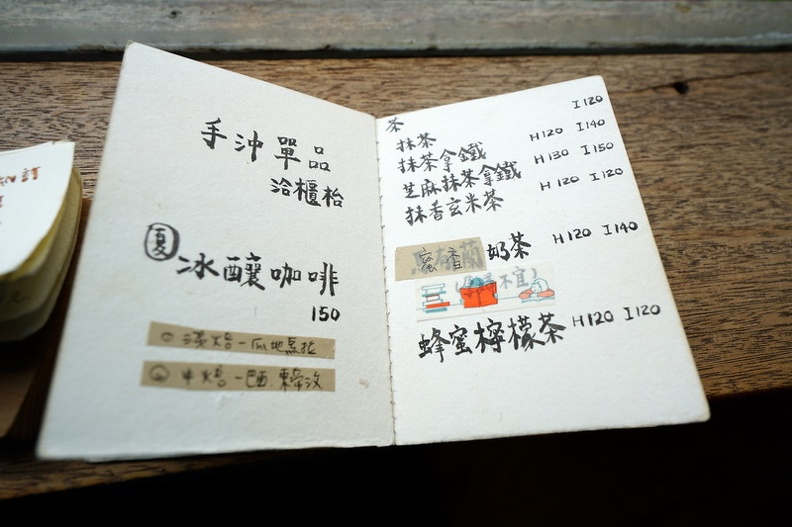 手沖單品
洽櫃枱
夏 冰釀咖啡
150
淺焙－瓜地馬拉
中焙－巴西.東帝汶
茶
抹茶 I120
抹茶拿鐵 H120 I140
芝麻抹茶拿鐵 H130 I150
抹香玄米茶 H120 I120
蜜香奶茶 H120 I140
蜂蜜檸檬茶 H120 I120